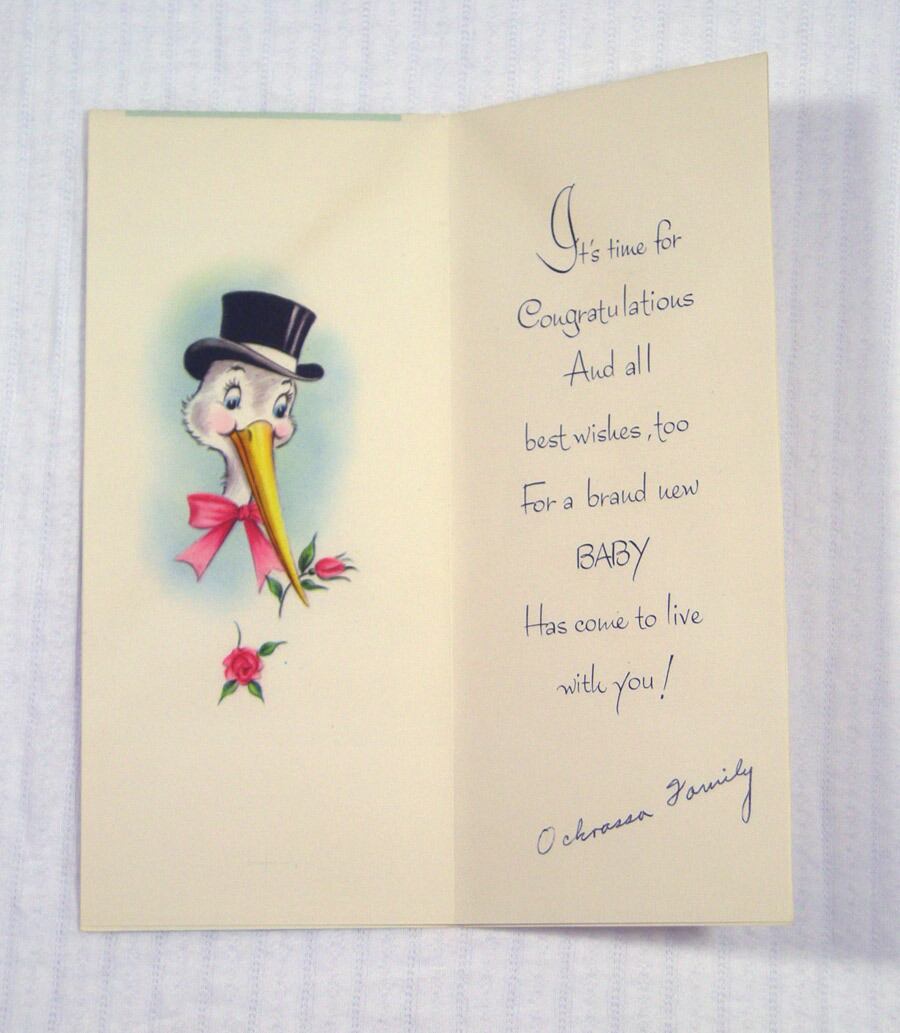 It's time for
Congratulations
And all
best wishes, too
For a brand new
BABY
Has come to live
with you!
Ockrassa Family